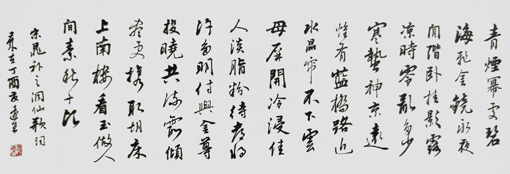 青煙冪處碧
海飛金鏡永夜
閒階卧桂影露
凉時零亂多少
寒螿神京遠
惟有藍橋路近
水晶帘不下雲
母屏開冷浸佳
人淡脂粉待都將
许多明付與金尊
投曉共流霞傾
盡更攜取胡床
上南樓看玉做人
間素秋千頃
宋晁补之洞仙歌词
丁酉